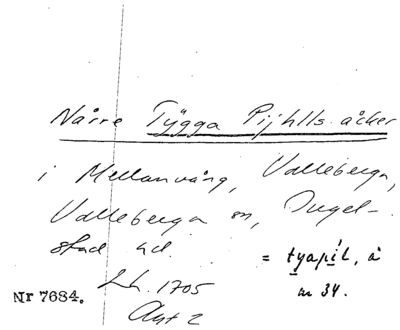 Nårre Tÿgga Pijhlls åcker
i Mellanvång, Valleberga,
Valleberga sn, Ingel-
stad hd.
= tyapil, å
nr 34.
Lh. 1705
Nr 7684.
Akt 2